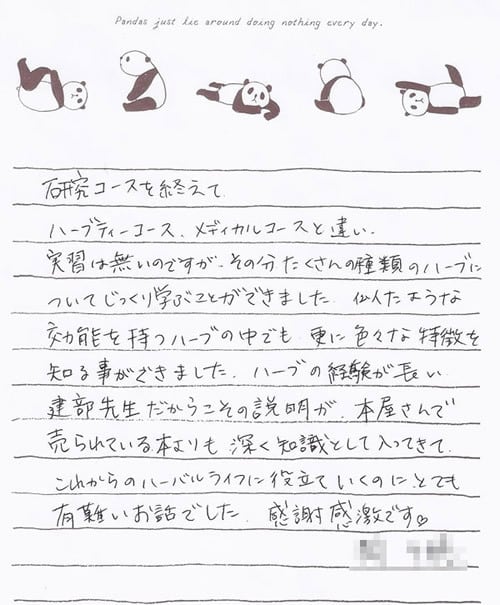 Pandas just lie around doing nothing every day.
研究コースを終えて
ハーブティーコース、メディカルコースと違い、
実習は無いのですが、その分たくさんの種類のハーブに
ついてじっくり学ぶことができました。似たような
効能を持つハーブの中でも、更に色々な特徴を
知る事ができました。ハーブの経験が長い
建部先生だからこその説明が、本屋さんで
売られている本よりも深く知識として入ってきて、
これからのハーバルライフに役立ていくのに、とても
有難いお話でした。感謝感激です♡